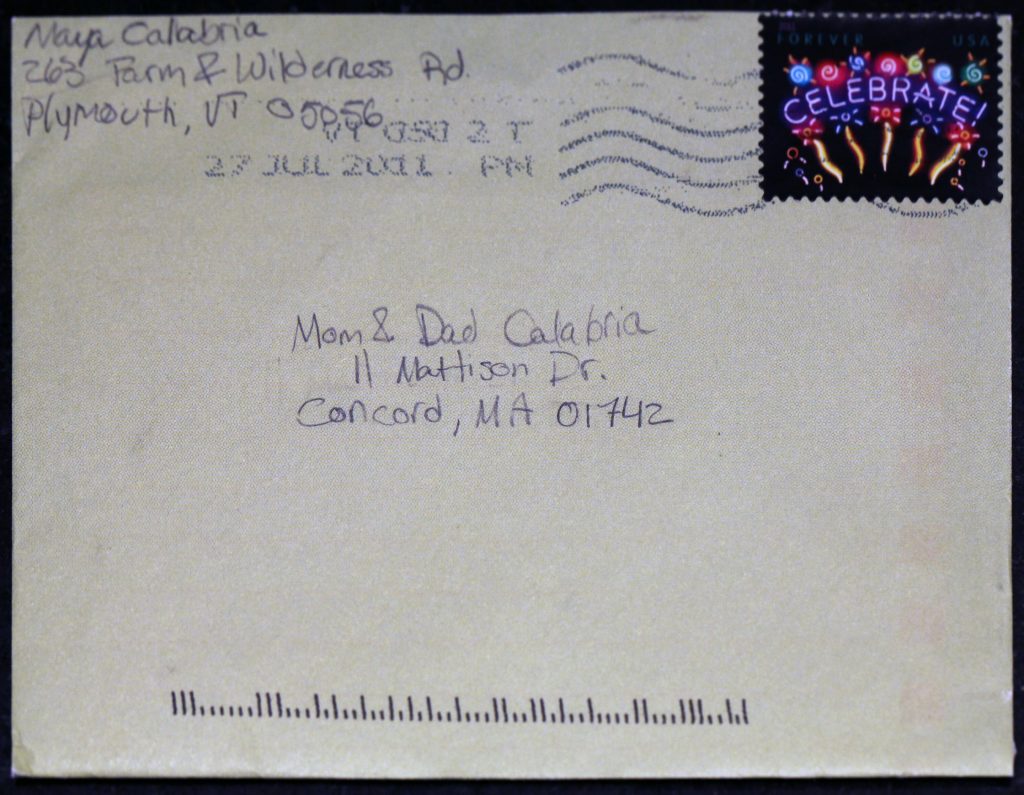 Maya Calabria
263 Farm & Wilderness Rd.
Plymouth, VT 05056
VT 050 2 T
27 JUL 2011 PM
FOREVER USA
CELEBRATE!
Mom & Dad Calabria
11 Mattison Dr.
Concord, MA 01742